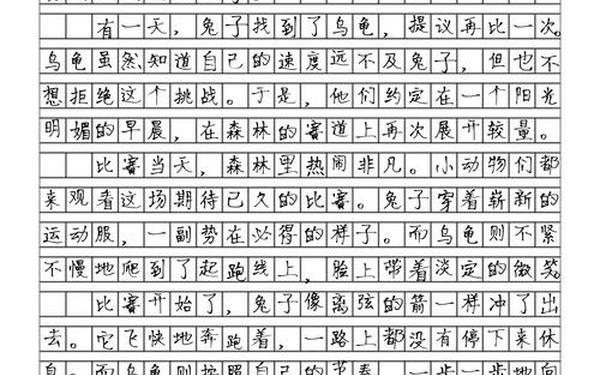 有一天，兔子找到了乌龟，提议再比一次。
乌龟虽然知道自己的速度远不及兔子，但也不
想拒绝这个挑战。于是，他们约定在一个阳光
明媚的早晨，在森林的赛道上再次展开较量。
比赛当天，森林里热闹非凡。小动物们都
来观看这场期待已久的比赛。兔子穿着崭新的
运动服，一副势在必得的样子。而乌龟则不紧
不慢地爬到了起跑线上，脸上带着淡定的微笑
比赛开始了，兔子像离弦的箭一样冲了出
去。它飞快地奔跑着，一路上都没有停下来休
息。而乌龟则按照自己的节奏，一步一步地向